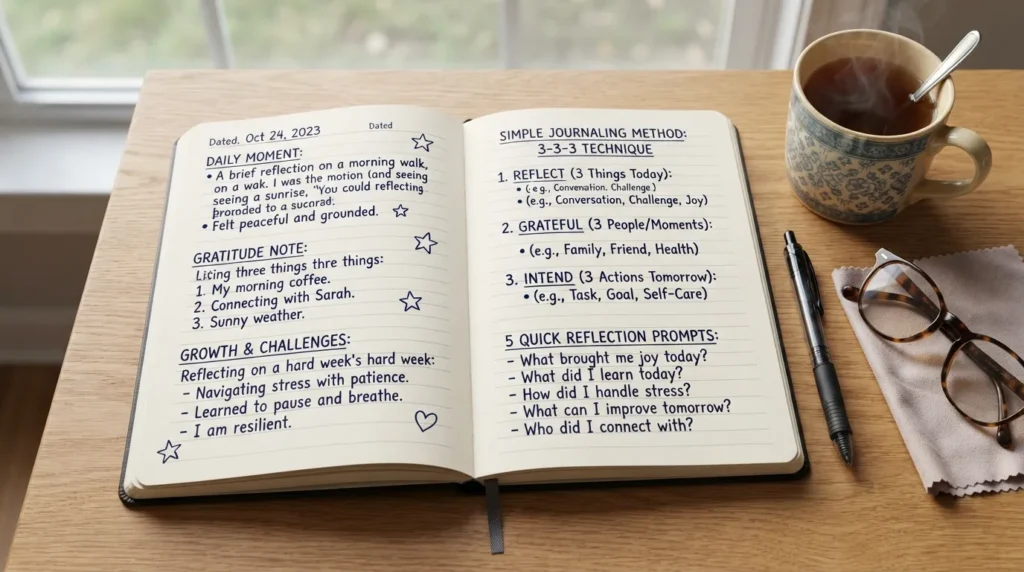 Dated. Oct 24, 2023
Dated
DAILY MOMENT:
• A brief reflection on a morning walk,
on a wak. I was the motion (and seeing
seeing a sunrise, "You could reflecting
proroded to a sucorad.
• Felt peaceful and grounded.
GRATITUDE NOTE:
Licing three things thre things:
1. My morning coffee.
2. Connecting with Sarah.
3. Sunny weather.
GROWTH & CHALLENGES:
Reflecting on a hard week's hard week:
- Navigating stress with patience.
- Learned to pause and breathe.
- I am resilient.
SIMPLE JOURNALING METHOD:
3-3-3 TECHNIQUE
1. REFLECT (3 Things Today):
• (e.g., Convenation. Challenge)
• (e.g., Conversation, Challenge, Joy)
2. GRATEFUL (3 People/Moments):
• (e.g., Family, Friend, Health)
3. INTEND (3 Actions Tomorrow):
• (e.g., Task, Goal, Self-Care)
5 QUICK REFLECTION PROMPTS:
- What brought me joy today?
- What did I learn today?
- How did I handle stress?
- What can I improve tomorrow?
- Who did I connect with?